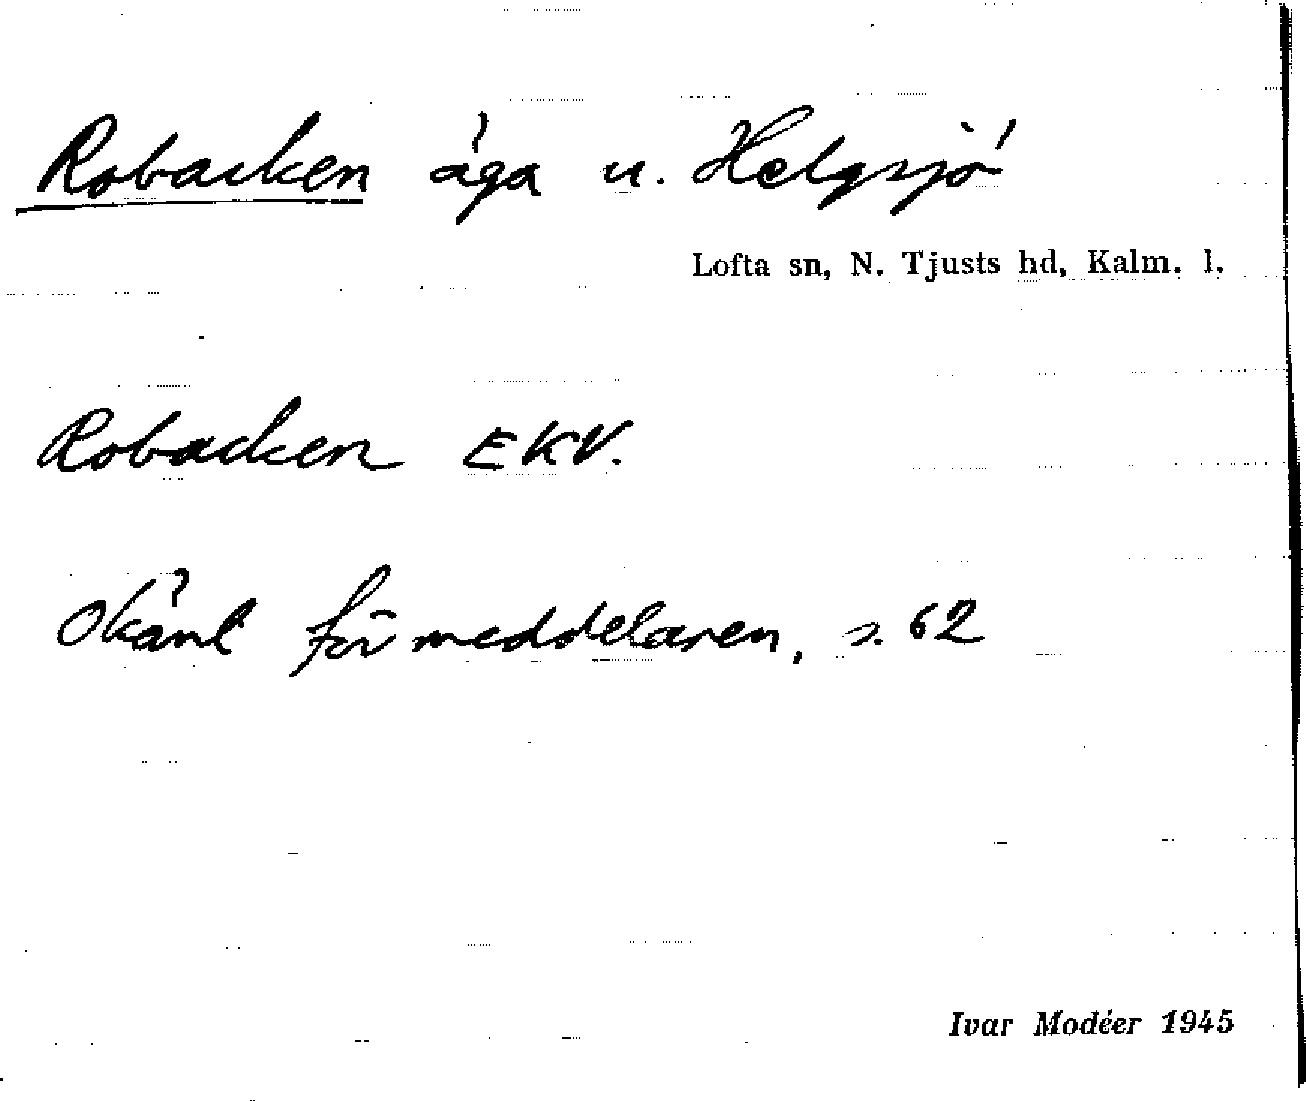 Robacken äga u. Helgsjö
Lofta sn, N. Tjusts hd, Kalm. l.
Robacken EKV.
Okänt för meddelaren, s. 62
Ivar Modéer 1945